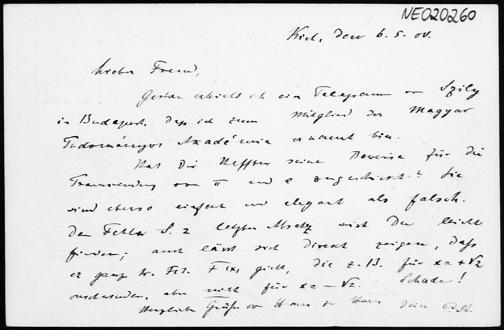 NE020260
Kiel, den 6. 5. 00.
Lieber Freund,
Gestern erhielt ich ein Telegramm von Szily
in Budapest, dass ich zum Mitglied der Magyar
Tudományos Akadémia ernannt bin.
Hat Dir Heffter seine Beweise für die
Transcendenz von π und e zugeschickt? Sie
sind ebenso einfach und elegant als falsch.
Den Fehler S. 2 letzter Absatz wirst Du leicht
finden; auch lässt sich direkt zeigen, dass
es ganz w. Fct. F(x) giebt, die z. B. für x = +√2
verschwinden, aber nicht für x = -√2. Schade!
Herzliche Grüsse von Haus zu Haus Dein P. St.